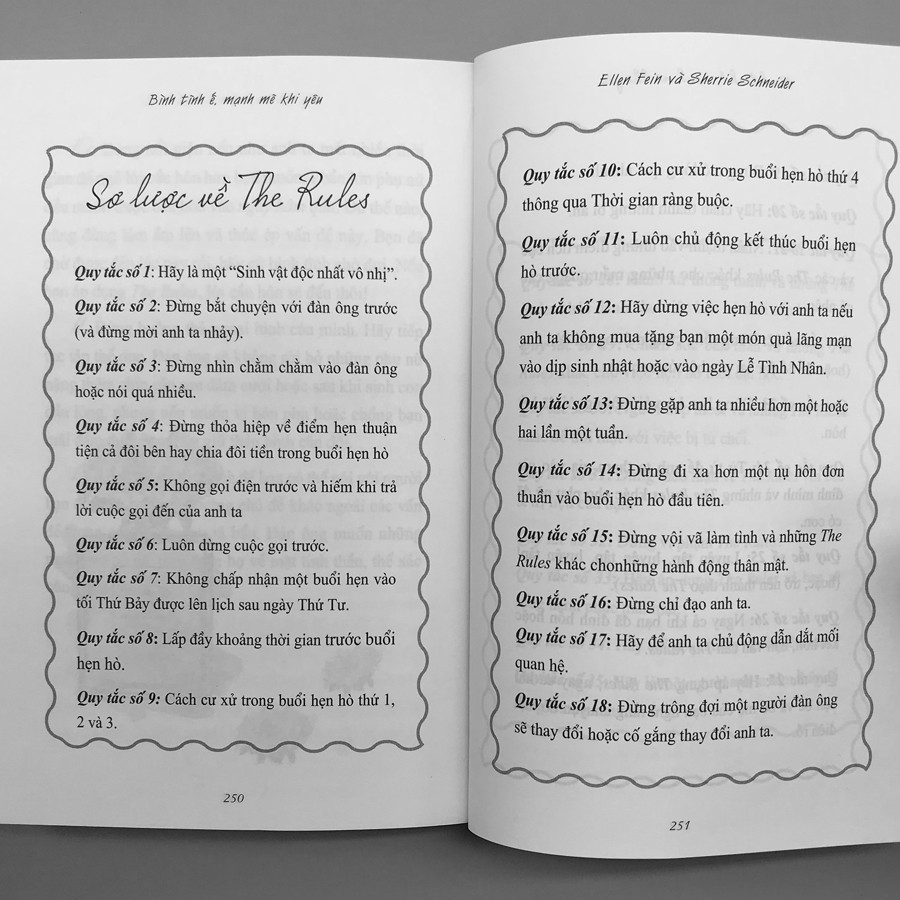 Bình tĩnh ế, mạnh mẽ khi yêu
Sơ lược về The Rules
Quy tắc số 1: Hãy là một “Sinh vật độc nhất vô nhị”.
Quy tắc số 2: Đừng bắt chuyện với đàn ông trước
(và đừng mời anh ta nhảy).
Quy tắc số 3: Đừng nhìn chằm chằm vào đàn ông
hoặc nói quá nhiều.
Quy tắc số 4: Đừng thỏa hiệp về điểm hẹn thuận
tiện cả đôi bên hay chia đôi tiền trong buổi hẹn hò
Quy tắc số 5: Không gọi điện trước và hiếm khi trả
lời cuộc gọi đến của anh ta
Quy tắc số 6: Luôn dừng cuộc gọi trước.
Quy tắc số 7: Không chấp nhận một buổi hẹn vào
tối Thứ Bảy được lên lịch sau ngày Thứ Tư.
Quy tắc số 8: Lấp đầy khoảng thời gian trước buổi
hẹn hò.
Quy tắc số 9: Cách cư xử trong buổi hẹn hò thứ 1,
2 và 3.
250
Ellen Fein và Sherrie Schneider
Quy tắc số 10: Cách cư xử trong buổi hẹn hò thứ 4
thông qua Thời gian ràng buộc.
Quy tắc số 11: Luôn chủ động kết thúc buổi hẹn
hò trước.
Quy tắc số 12: Hãy dừng việc hẹn hò với anh ta nếu
anh ta không mua tặng bạn một món quà lãng mạn
vào dịp sinh nhật hoặc vào ngày Lễ Tình Nhân.
Quy tắc số 13: Đừng gặp anh ta nhiều hơn một hoặc
hai lần một tuần.
Quy tắc số 14: Đừng đi xa hơn một nụ hôn đơn
thuần vào buổi hẹn hò đầu tiên.
Quy tắc số 15: Đừng vội vã làm tình và những The
Rules khác chonhững hành động thân mật.
Quy tắc số 16: Đừng chỉ đạo anh ta.
Quy tắc số 17: Hãy để anh ta chủ động dẫn dắt mối
quan hệ.
Quy tắc số 18: Đừng trông đợi một người đàn ông
sẽ thay đổi hoặc cố gắng thay đổi anh ta.
251